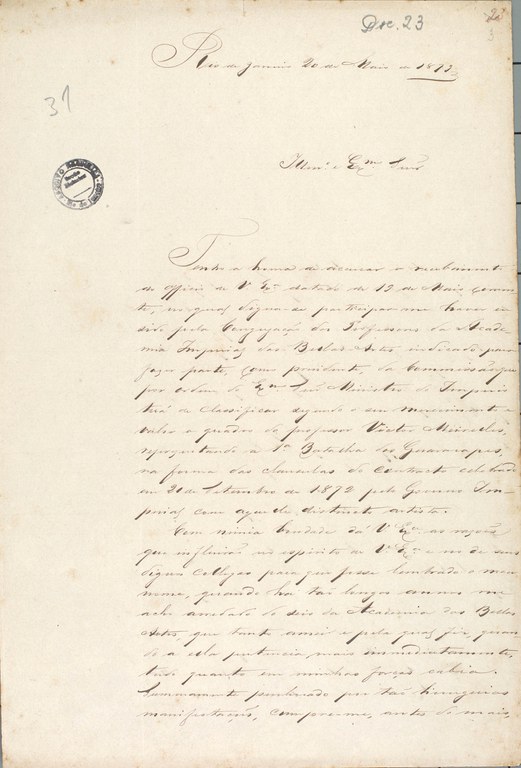 Doc. 23
23
3
31
Rio de Janeiro 20 de Maio de 1879
Illmo. e Exmo. Snr.
Tenho a honra de accusar o recebimento
do officio de V Exa. datado de 12 de Maio corren-
te, no qual digna-se participar-me haver eu
sido pela Congregação dos Professores da Acade-
mia Imperial das Bellas-Artes indicado para
fazer parte, como presidente, da Commissão que
por ordem do Exmo. Snr. Ministro do Imperio
terá de classificar segundo o seu merecimento e
valor o quadro do professor Victor Meirelles,
representando a 1a. Batalha dos Guararapes,
na forma das clausulas do contracto celebrado
em 31 de Setembro de 1872 pelo Governo Im-
perial com aquelle distincto artista.
Com nimia bondade dá V Exa. as rasões
que influirão no espirito de V Exa. e no de seus
dignos collegas para que fosse lembrado o meu
nome, quando há tão longos annos me
acho arredado do seio da Academia das Bellas
Artes, que tanto amei e pela qual fiz, quando
a ella pertencia mais immediatamente,
tudo quanto em minhas forças cabia.
Summamente penhorado por tão lisongeiras
manifestações, cumpre-me, antes de mais,